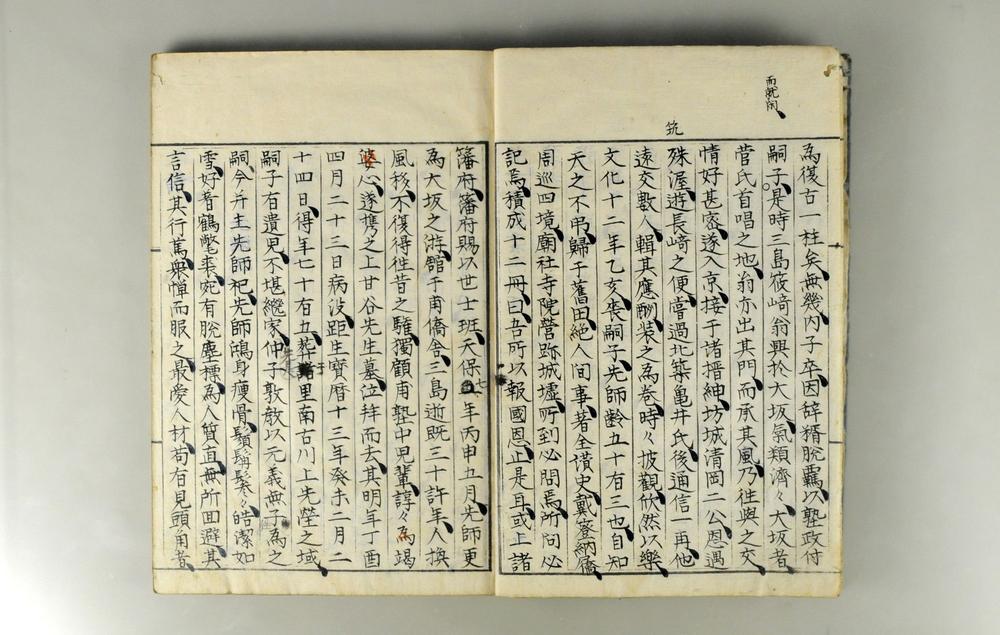 而就閑
筑
為復古一柱矣無幾内子卒因辞㺃脫羈以塾政付
嗣子是時三島筱﨑翁興於大坂氣類濟々大坂者
菅氏首唱之地翁亦出其門而承其風乃徃與之交
情好甚密遂入京接于诸搢紳坊城清岡二公恩遇
殊渥遊長﨑之便嘗過北築亀井氏後通信一再他
遠交數人輯其應酬装之為巻時々披觀欣然以樂
文化十二年乙亥喪嗣子先師齢五十有三也自知
天之不弔歸于舊田絶人间事著全讃史戴簦納屩
周巡四境廟社寺院營跡城墟所到必問焉所问必
記焉積成十二冊曰吾所以報國恩止是耳或上諸
藩府藩府賜以世士班天保七年丙申五月先師更
為大坂之游舘于甫僑舎三島逝既三十許年人換
風移不復得徃昔之騅獨顧甫塾中児輩諄々為竭
婆心遂携之上甘谷先生墓位拝而去其明年丁酉
四月二十三日病没距生寶暦十三年癸未二月二
十四日得年七十有五葬諸里南古川上先塋之域
嗣子有遺児不堪継家仲子敦敬以元義無子為之
嗣今并主先師祀先師鴻身痩骨鬚髯鬖々皓潔如
雪好着鶴氅裘宛有脫塵標為人質直無所回避其
言信其行篤衆憚而服之最愛人材苟有見頭角者